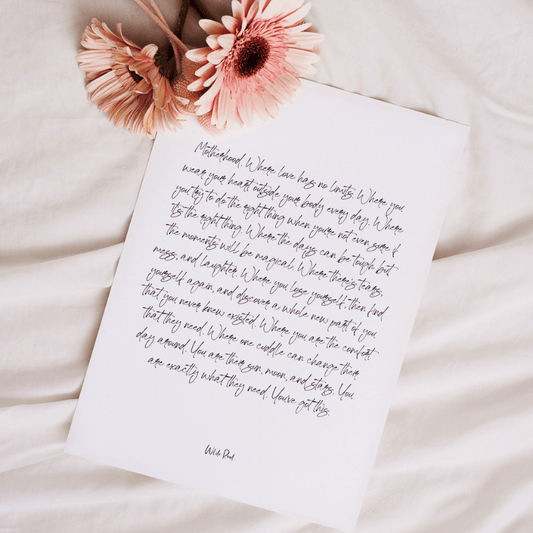 Motherhood. Where love has no limits. Where you
wear your heart outside your body every day. Where
you try to do the right thing when you're not even sure if
its the right thing. Where the days can be tough but
the moments will be magical. Where there's tears,
mess, and laughter. Where you lose yourself, then find
yourself again, and discover a whole new part of you
that you never knew existed. Where you are the comfort
that they need. Where one cuddle can change their
day around. You are their sun, moon, and stars. You
are exactly what they need. You've got this.